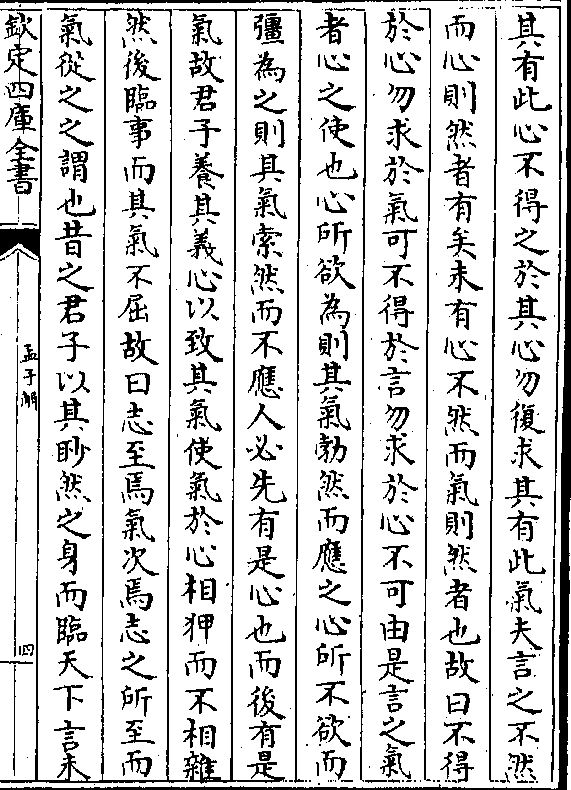 其有此心不得之於其心勿復求其有此氣夫言之不然
而心則然者有矣未有心不然而氣則然者也故曰不得
於心勿求於氣可不得於言勿求於心不可由是言之氣
者心之使也心所欲為則其氣勃然而應之心所不欲而
彊為之則其氣索然而不應人必先有是心也而後有是
氣故君子養其義心以致其氣使氣於心相狎而不相離
然後臨事而其氣不屈故曰志至焉氣次焉志之所至而
氣從之之謂也昔之君子以其眇然之身而臨天下言未
欽定四庫全書
孟子解
四